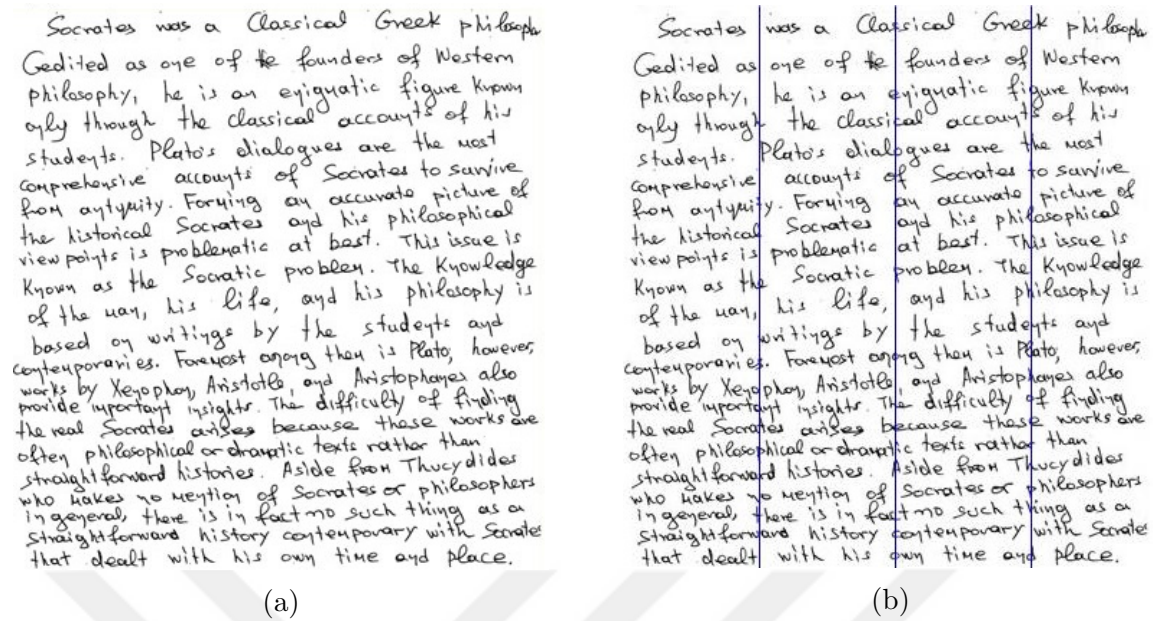 Socrates was a Classical Greek philosoph
Gedited as one of the founders of Western
philosophy, he is an enigmatic figure known
only through the classical accounts of his
students. Plato's dialogues are the most
comprehensive accounts of Socrates to survive
from antiquity. Forming an accurate picture of
the historical Socrates and his philosophical
viewpoints is problematic at best. This issue is
known as the Socratic problem. The Knowledge
of the man, his life, and his philosophy is
based on writings by the students and
contemporaries. Foremost among them is Plato, however,
works by Xenophon, Aristotle, and Aristophanes also
provide important insights. The difficulty of finding
the real Socrates arises because these works are
often philosophical or dramatic texts rather than
straightforward histories. Aside from Thucydides
who makes no mention of Socrates or philosophers
in general, there is in fact no such thing as a
straightforward history contemporary with Socrates
that dealt with his own time and place.
(a)
Socrates was a Classical Greek philosoph
Gedited as one of the founders of Western
philosophy, he is an enigmatic figure known
only through the classical accounts of his
students. Plato's dialogues are the most
comprehensive accounts of Socrates to survive
from antiquity. Forming an accurate picture of
the historical Socrates and his philosophical
viewpoints is problematic at best. This issue is
known as the Socratic problem. The Knowledge
of the man, his life, and his philosophy is
based on writings by the students and
contemporaries. Foremost among them is Plato, however,
works by Xenophon, Aristotle, and Aristophanes also
provide important insights. The difficulty of finding
the real Socrates arises because these works are
often philosophical or dramatic texts rather than
straightforward histories. Aside from Thucydides
who makes no mention of Socrates or philosophers
in general, there is in fact no such thing as a
straightforward history contemporary with Socrates
that dealt with his own time and place.
(b)